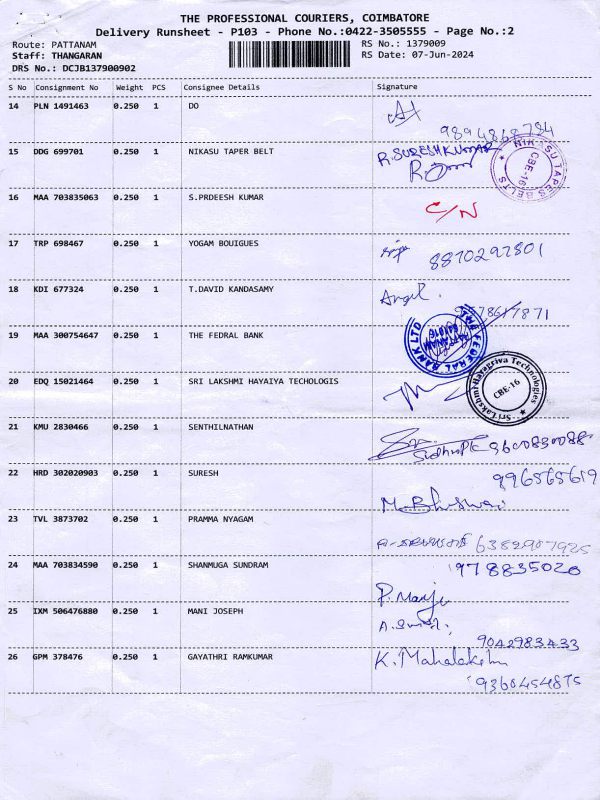 THE PROFESSIONAL COURIERS, COIMBATORE
Delivery Runsheet - P103 - Phone No.:0422-3505555 - Page No.:2
Route: PATTANAM RS No.: 1379009
Staff: THANGARAN RS Date: 07-Jun-2024
DRS No.: DCJB137900902
S No Consignment No Weight PCS Consignee Details Signature
14 PLN 1491463 0.250 1 DO
9894868784
15 DDG 699701 0.250 1 NIKASU TAPER BELT R.SURESHKUMAR
NIKASU TAPES BELTS CBE-16
16 MAA 703835063 0.250 1 S.PRDEESH KUMAR C/N
17 TRP 698467 0.250 1 YOGAM BOUIGUES 8870297801
18 KDI 677324 0.250 1 T.DAVID KANDASAMY Angel.
19 MAA 300754647 0.250 1 THE FEDRAL BANK
THE FEDERAL BANK LTD PATTANAM 641016
20 EDQ 15021464 0.250 1 SRI LAKSHMI HAYAIYA TECHOLOGIS
Sri Lakshmi Hayagriva Technologies CBE-16
21 KMU 2830466 0.250 1 SENTHILNATHAN
9600830088
22 HRD 302020903 0.250 1 SURESH 996565619
23 TVL 3873702 0.250 1 PRAMMA NYAGAM
6382907925
24 MAA 703834590 0.250 1 SHANMUGA SUNDRAM 978835020
P. Manju
25 IXM 506476880 0.250 1 MANI JOSEPH
9042983433
26 GPM 378476 0.250 1 GAYATHRI RAMKUMAR K. Mahalakshmi
9360454875